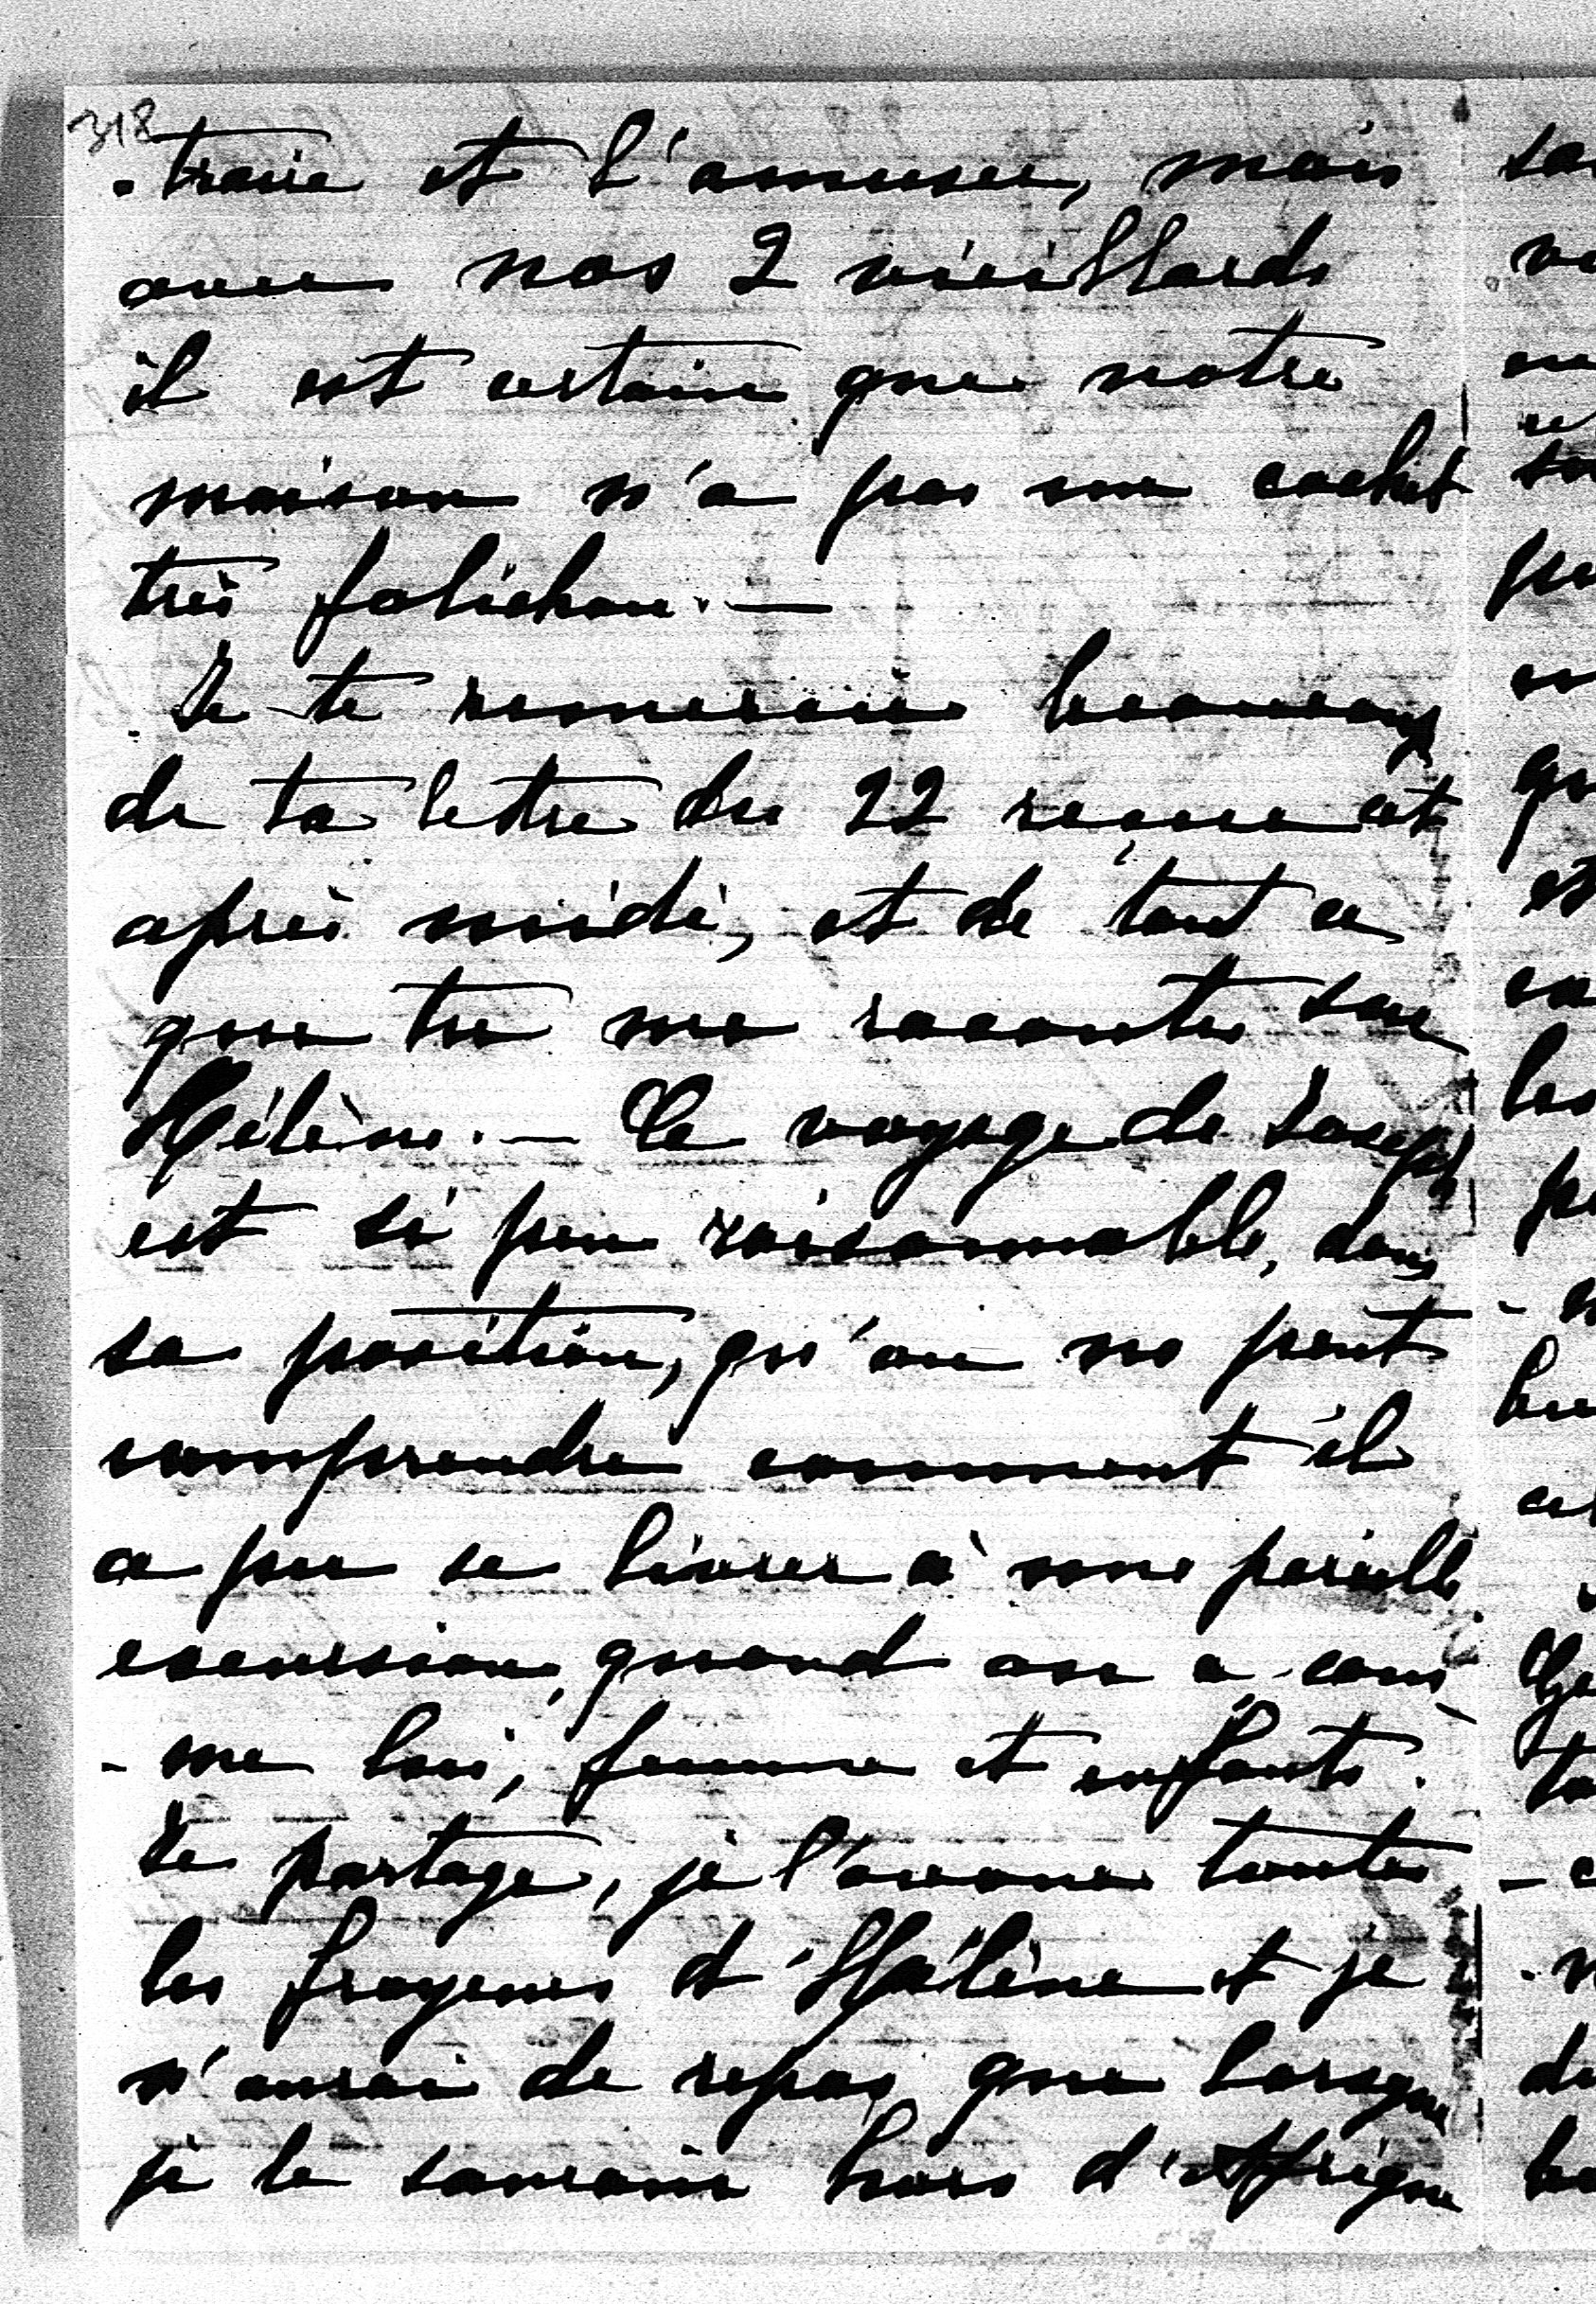 318
-traire et l'amuser, mais
avec nos 2 vieillards
il est certain que notre
maison n'a pas un cachet
très folichon. —
Je te remercie beaucoup
de ta lettre du 22 reçue cet
après midi, et de tout ce
que tu me racontes sur
Hélène. — Le voyage de Joseph
est si peu raisonnable, dans
sa position, qu'on ne peut
comprendre comment il
a pu se livrer à une pareille
excursion, quand on a, com
- me lui, femme et enfants.
Je partage, je l'avoue toutes
les frayeurs d'Hélène et je
n'aurai de repos que lorsque
je le saurais hors d'Afrique